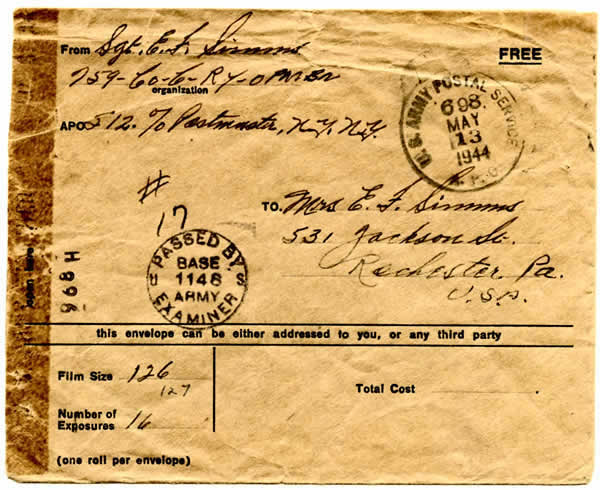 From Sgt. E. F. Simms
FREE
759-Co-C-Ry-OPN Bn
organization
APO 512. % Postmaster, N.Y. N.Y.
U.S. ARMY POSTAL SERVICE
698
MAY
13
1944
A.P.O.
#
17
TO. Mrs E. F. Simms
531 Jackson St.
Rochester Pa.
U.S.A.
PASSED BY
BASE
1148
ARMY
EXAMINER
U S
968 H
this envelope can be either addressed to you, or any third party
Film Size 126
127
Total Cost
Number of
Exposures 16
(one roll per envelope)